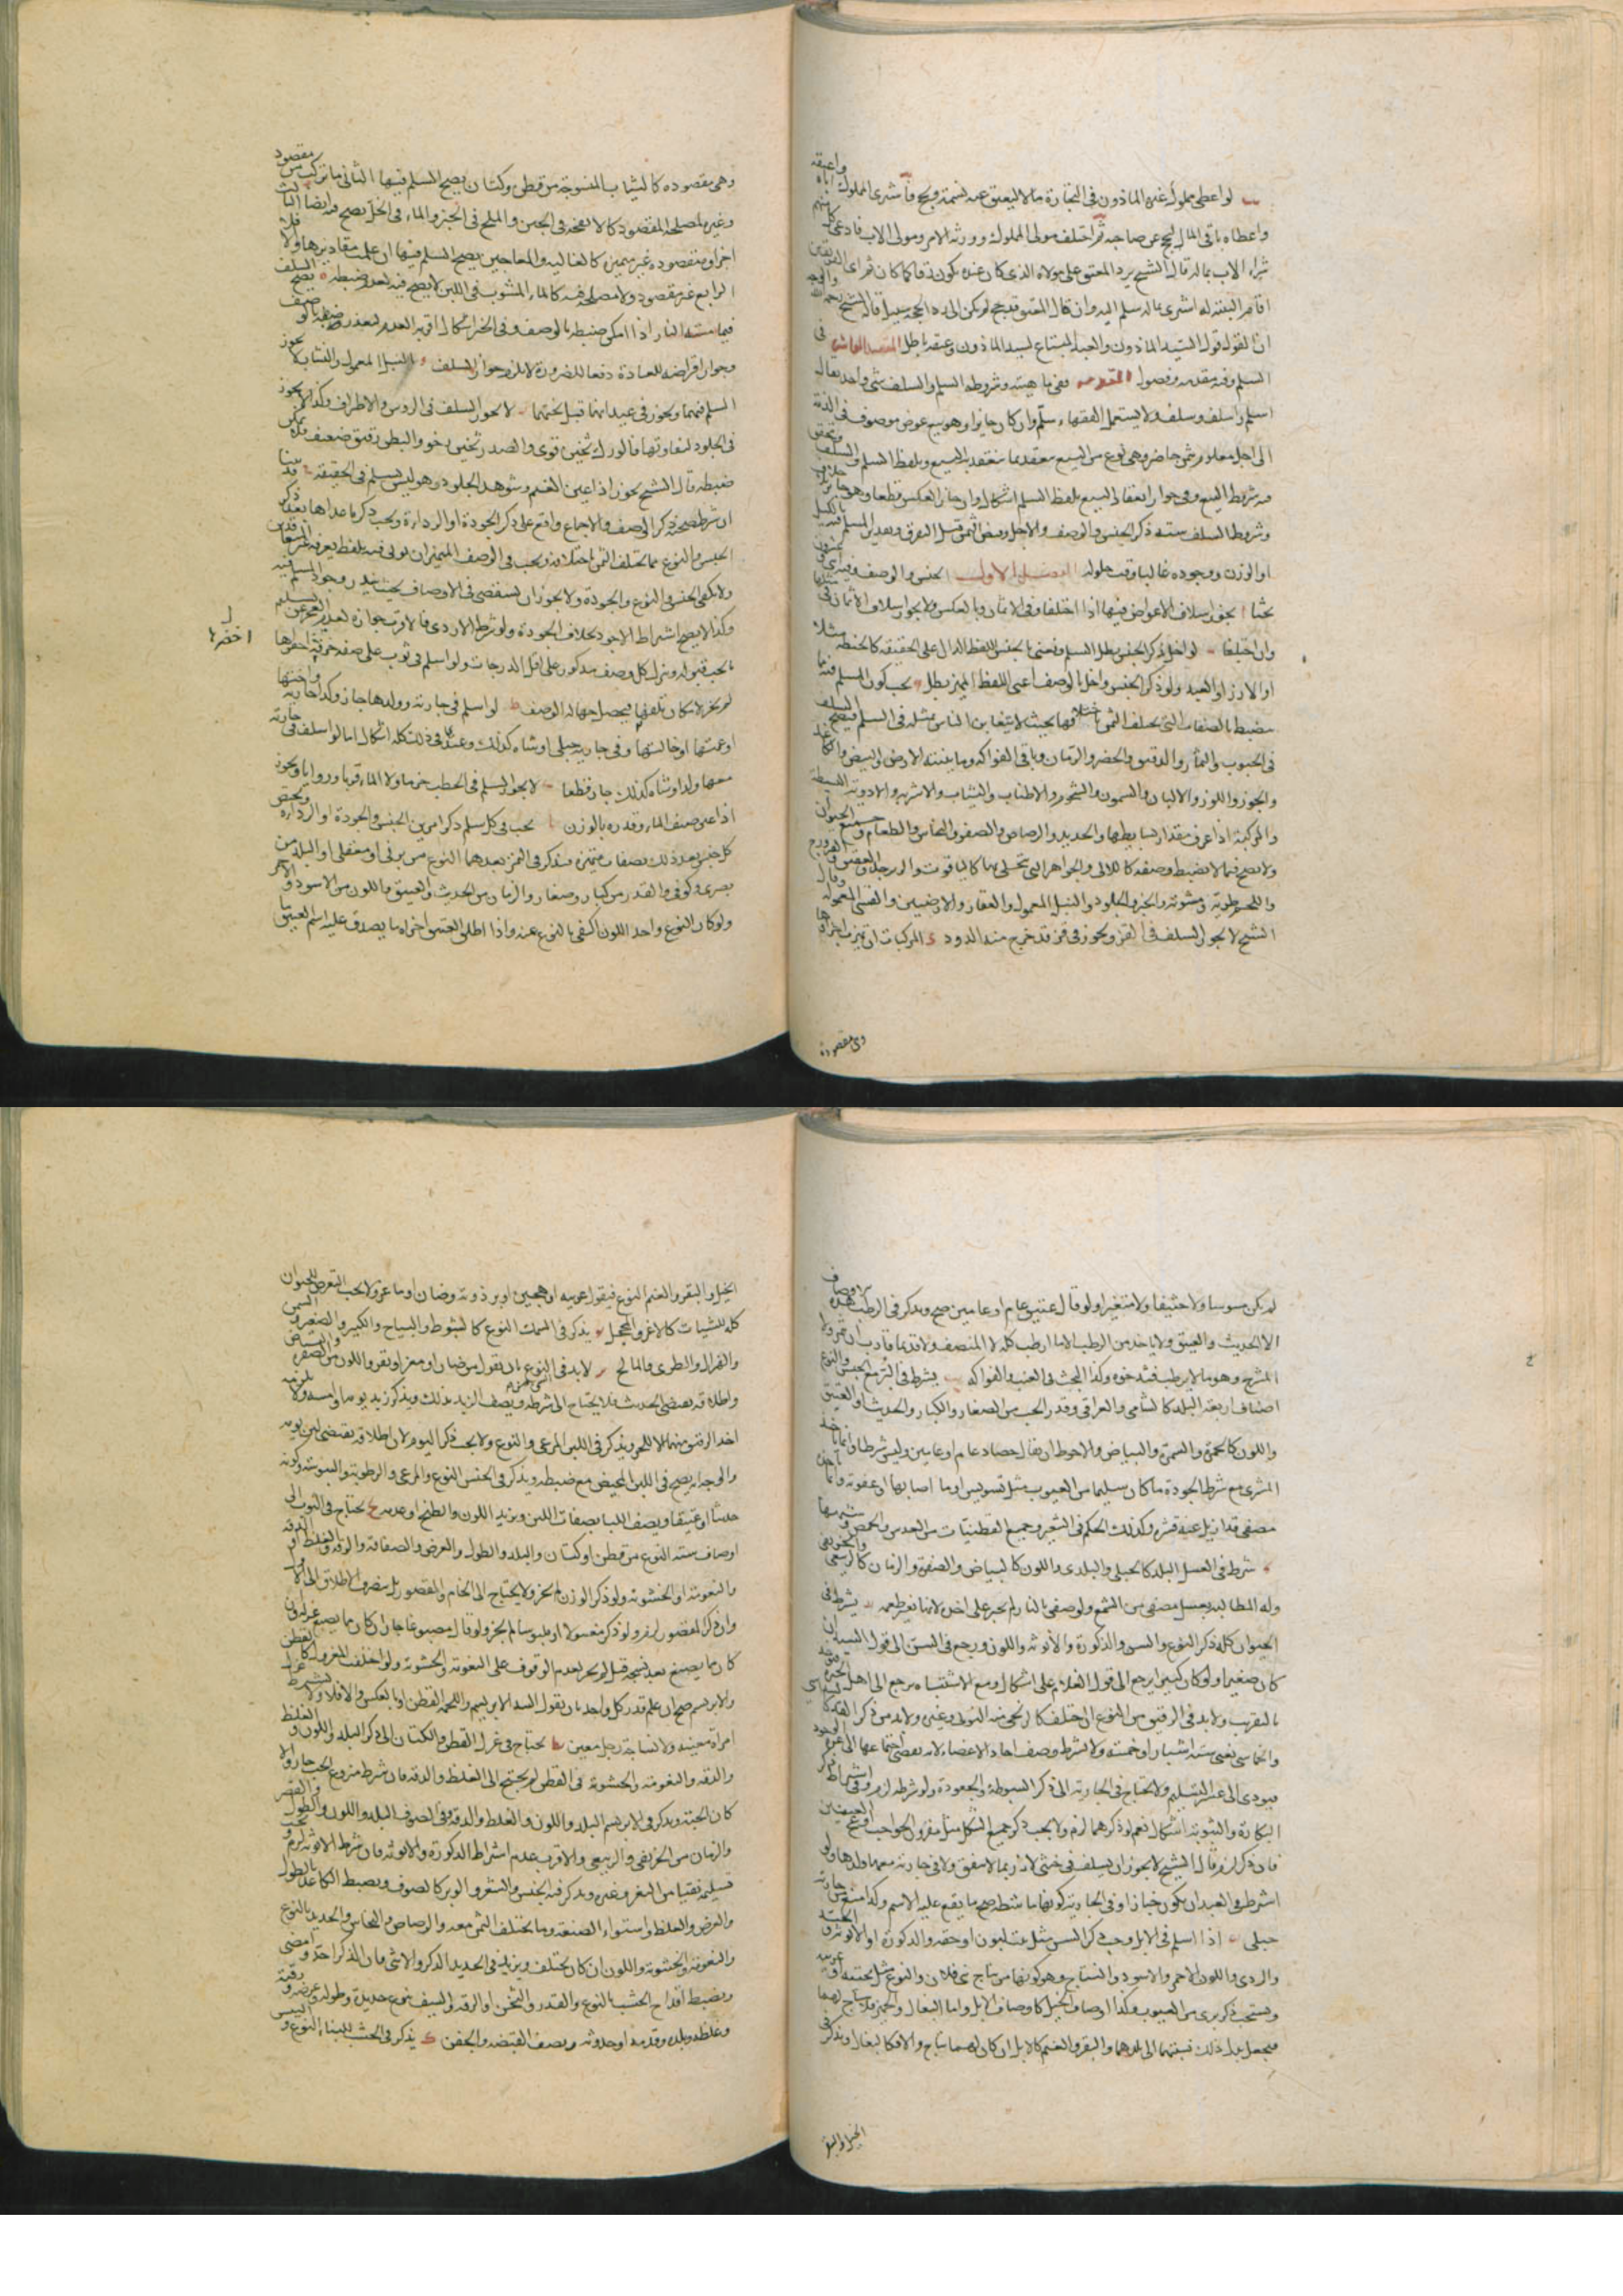 لو اعطى مملوك غيره الماذون فى التجارة مالا ليعتق عنه نسمة ويحج فاشترى المملوك اباه واعتقه
واعطاه باقى المال ليحج عن صاحبه ثم اختلف مولى المملوك وورثة الامر ومولى الاب فادعى كل منهم
شراء الاب بماله قال الشيخ يرد المعتق على مولاه الذى كان عنده يكون رقا كما كان ثم اى الفريقين
اقام البينة انه اشترى بماله سلم اليه وان كان المعتق قد حج لم يكن الى رد الحج سبيل قال الشيخ رحمه الله والوجه
انا نقول قول السيد الماذون والعبد المبتاع لسيد الماذون وعتقه باطل المقصد العاشر فى
السلم وفيه مقدمة وفصول المقدمة ففى ماهيته وشروطه السلم والسلف شئ واحد يقال
اسلم واسلف وسلف ولا يستعمل الفقهاء سلم وان كان جايزا وهو بيع عوض موصوف فى الذمة
الى اجل معلوم بثمن حاضر وهى نوع من البيع ينعقد بما ينعقد به البيع وبلفظ السلم والسلف
فيه شروط البيع وفى جواز انعقاد البيع بلفظ السلم اشكال وان جاز العكس قطعا وهى جايزة
وشروط السلف ستة ذكر الجنس والوصف والاجل وقبض الثمن قبل التفرق وتقدير المسلم فيه بالكيل
او الوزن ووجوده غالبا وقت حلوله الفصل الاول الجنس والوصف وفيه عشرون
بحثا ا يجوز اسلاف الاعواض فيها اذا اختلفا وفى الاثمان وبالعكس ولا يجوز اسلاف الاثمان فى مثلها
وان اختلفا ب لو اخل بذكر الجنس بطل السلم ونعنى بالجنس اللفظ الدال على الحقيقة كالحنطة مثلا
او الارز او العبيد ولو ذكر الجنس واخل بالوصف اعنى اللفظ المميز بطل ج يجب كون المسلم فيه مما
ينضبط بالصفات التى يختلف الثمن باختلافها بحيث لا يتغابن الناس بمثله فى السلم فيصح السلف
فى الحبوب والثمار والدقيق والخضر والرمان وباقى الفواكه وما ينبته الارض والبيض
والجوز واللوز والالبان والسمون والشحوم والاطياب والثياب والاشربة والادوية البسيطة
والمركبة اذا عرف مقدار بسايطها والحديد والرصاص والصفر والنحاس والطعام وجميع الحيوان
ولا يصح فيما لا ينضبط وصفه كاللالى والجواهر التى يتحلى بها كالياقوت والزبرجد والعقيق والفيروزج
واللحم طرية ومشوية والخبز والجلود والنبل المعمول والعقار والارضيين والقسى المعمولة وقال
الشيخ لا يجوز السلف فى القز ويجوز فى قز قد خرج منه الدود د المركبات ان تميزت اجزاؤها
وهى مقصودة
وهى مقصودة كالثياب المنسوجة من قطن وكتان يصح السلم فيها الثانى ما تركب من مقصود
وغيره لمصلحة المقصود كالانفحة فى الجبن والملح فى الخبز والماء فى الخل يصح فيه ايضا الثالث
اجزاؤه مقصودة غير متميزة كالغالية والمعاجين يصح السلم فيها ان علمت مقاديرها والا فلا
الرابع غير مقصود ولا مصلحة فيه كالماء المشوب فى اللبن لا يصح فيه لعدم ضبطه ه يصح السلف
فيما مسته النار اذا امكن ضبطه بالوصف وفى الخبز اشكال اقربه العدم لتعذر وصفه
وجواز اقراضه للعادة دفعا للضرورة لا يلزم جواز السلف و النبل المعمول والنشاب لا يجوز
السلم فيهما ويجوز فى عيدانها قبل نحتها ز لا يجوز السلف فى الروس والاطراف وكذا لا يجوز
فى الجلود لتفاوتها فالورك ثخين قوى والصدر ثخين رخو والبطن رقيق ضعيف فلا يمكن
ضبطه قال الشيخ يجوز اذا عين الغنم وشوهد الجلود وهو ليس بسلم فى الحقيقة ح قد بينا
ان شرط صحته ذكر الوصف والاجماع واقع على ذكر الجودة او الرداءة ويجب ذكر ما عداها بعد ذكر
الجنس والنوع مما يختلف الثمن باختلافه ويجب فى الوصف المميز ان يؤتى فيه بلفظ يعرفه غير المتعاقدين
ولا يكفى الجنس والنوع والجودة ولا يجوز ان يستقصى فى الاوصاف بحيث يندر وجود المسلم فيه
وكذا لا يصح اشتراط الاجود بخلاف الجودة ولو شرط الاردى فالاقرب جوازه لعدم العجز عن التسليم
ما يجب قبوله وينزل كل وصف مذكور على اقل الدرجات ولو اسلم فى ثوب على صفة خرقة احضرها
لم يجز لامكان تلفها فيحصل جهالة الوصف ط لو اسلم فى جارية وولدها جاز وكذا جارية واختها
او عمتها او خالتها وفى جارية حبلى او شاة كذلك وعندى فى ذلك كله اشكال اما لو اسلف فى جارية
معها ولد او شاة كذلك جاز قطعا ى لا يجوز السلم فى الحطب حزما ولا الماء قربا وروايا ويجوز
اذا عين صنف الماء وقدره بالوزن يا يجب فى كل سلم ذكر امرين الجنس والجودة او الرداءة ويختص
كل جنس بعد ذلك بصفات يتميز فيذكر فى التمر بعدهما النوع من برنى او معقلى او البلد من
بصرى وكوفى والقدر من كبار وصغار والزمان من الحديث والعتيق واللون من الاسود والاحمر
ولو كان النوع واحد اللون اكتفى بالنوع عنه واذا اطلق العتيق اجزاه ما يصدق عليه اسم العتيق
ل
احضرها
لم يكن مسوسا ولا حشيفا ولا متغيرا ولو قال عتيق عام او عامين صح ويذكر فى الرطب هذه الاوصاف
الا الحديث والعتيق ولا ياخذ من الرطب الا ما ارطب كله لا المنصف ولا قديما قارب ان
المشدخ وهو ما لم يرطب فشدخوه وكذا البحث فى العنب والفواكه يب يشترط فى البر مع الجنس والنوع
اوصاف اربعة البلد كالشامى والعراقى وقدر الحب من الصغار والكبار والحديث او العتيق
واللون كالحمرة والسمرة والبياض والاحوط ان يقال حصاد عام او عامين وليس شرطا وانما ياخذ
المشترى مع شرط الجودة ما كان سليما من العيوب مثل تسويس او ما اصابها او عفونة وانما ياخذ
مصفى قد ازيل عنه قشره وكذلك الحكم فى الشعير وجميع القطنيات من العدس والحمص وشبهها
يج يشترط فى العسل البلد كالجبلى والبلدى واللون كالبياض والصفرة والزمان كالربيعى والخريفى
وله المطالبة بعسل مصفى من الشمع ولو صفى بالنار لم يجبر على اخذه لانها تغير طعمه يد يشترط فى
الحيوان كله ذكر النوع والسن والذكورة والأنوثة واللون ويرجع فى السن الى قول السيد ان
كان صغيرا ولو كان كبيرا يرجع الى قول الغلام على اشكال ومع الاشتباه يرجع الى اهل الخبرة
بالتقريب ولا بد فى الرقيق من النوع ان اختلف كالزنجى منه النوبى وغيره ولا بد من ذكر القد كالسداسى
والخماسى يعنى ستة اشبار او خمسة ولا يشترط وصف احاد الاعضاء لانه يفضى اجتماعها الى عزة الوجود
فيودى الى عسر التسليم ولا يحتاج فى الجارية الى ذكر السبوطة والجعودة ولو شرطه لزم وفى اشتراط ذكر
البكارة والثيوبة اشكال نعم لو ذكرهما لزم ولا يجب ذكر جميع الشكل مثل مقرون الحواجب ادعج العينين
فان ذكر لزم قال الشيخ لا يجوز ان يسلف فى خنثى لانه ربما لا يتفق ولا فى جارية معها ولدها ولو
اشترط فى العبد ان يكون خبازا او فى الجارية كونها ماشطة صح ما يقع عليه الاسم وكذا منع من جارية
حبلى يه اذا اسلم فى الابل وجب ذكر السن مثل بنت لبون او حقة والذكورة او الانوثة والجيد
والردى واللون الاحمر والاسود والنتاج وهو كونها من نتاج بنى فلان والنوع مثل بختية او عربية
ويستحب ذكر برى من العيوب وكذا اوصاف الخيل كاوصاف الابل واما البغال والحمير فلا نتاج لهما
فيجعل بدل ذلك نسبتهما الى بلدهما والبقر والغنم كالابل ان كان لهما نتاج والا فكالبغال ويذكر فى
الخيل والبقر
الخيل والبقر والغنم النوع فيقول عربية او هجين او برذونة وضان او ماعز ولا يجب التعرض للحيوان
كله للشيات كالاغر والمحجل يو يذكر فى السمك النوع كالشبوط والسباح والكبير والصغير والسمن
والهزال والطرى والمالح يز لا بد فى النوع بان يقول من ضان او معز او بقر واللون من الصفرة والبياض
واطلاقه يقتضى الحديث فلا يحتاج الى شرطه ويصف الزبد بذلك ويذكر زبد يومه او امسه ولا يلزمه
اخذ الرقيق منهما الا للحر ويذكر فى اللبن المرعى والنوع ولا يجب ذكر اليوم لان اطلاقه يقتضى لبن يومه
والوجه انه يصح فى اللبن المخيض مع ضبطه ويذكر فى الجبن النوع والمرعى والرطوبة واليبوسة وكونه
حديثا او عتيقا ويصف اللبا بصفات اللبن ويزيد اللون والطبخ او عدمه يح يحتاج فى الثوب الى
اوصاف ستة النوع من قطن او كتان والبلد والطول والعرض والصفاقة والرقة والغلظ او الدقة
والنعومة او الخشونة ولو ذكر الوزن لم يجز ولا يحتاج الى الخام والمقصور بل ينصرف الاطلاق الى الاول
وان ذكر المقصور لزم ولو ذكر مغسولا او ملبوسا لم يجز ولو قال مصبوغا جاز ان كان مما يصبغ غزله وان
كان مما يصبغ بعد نسجه قيل لم يجز لعدم الوقوف على النعومة والخشونة ولو اختلف الغزول كالقطن
والابريسم صح ان علم قدر كل واحد بان يقول السدا الابريسم واللحمة القطن او بالعكس والا فلا ولا يشترط غزل
امراة معينة ولا نساجة رجل معين يط يحتاج فى غزل القطن والكتان الى ذكر البلد واللون والغلظ
والدقة والنعومة والخشونة فى القطن لم يحتج الى الغلظ والدقة فان شرط منزوع الحب جاز والا
كان بحبه ويذكر فى الابريسم البلد واللون والغلظ والدقة وفى الصوف البلد واللون والطول والقصر
والزمان من الخريفى والربيعى والاقرب عدم اشتراط الذكورة والانوثة فان شرط الانوثة لزم ويجب
تسليمه نقيا من البعر وغيره ويذكر فيه الجنس والشعر والوبر كالصوف ويضبط الكاغد بالطول
والعرض والغلظ واستواء الصنعة وما يختلف الثمن معه والرصاص والنحاس والحديد بالنوع
والنعومة والخشونة واللون ان كان يختلف ويزيد فى الحديد الذكر والانثى فان الذكر احد وامضى
ويضبط اقداح الخشب بالنوع والقدر والثخن او الرقة والسيف بنوع حديده وطوله وعرضه ورقته
وغلظه وبلده وقدمه او حدوثه ويصف القبضة والجفن ك يذكر فى الخشب للبناء النوع واليبس و